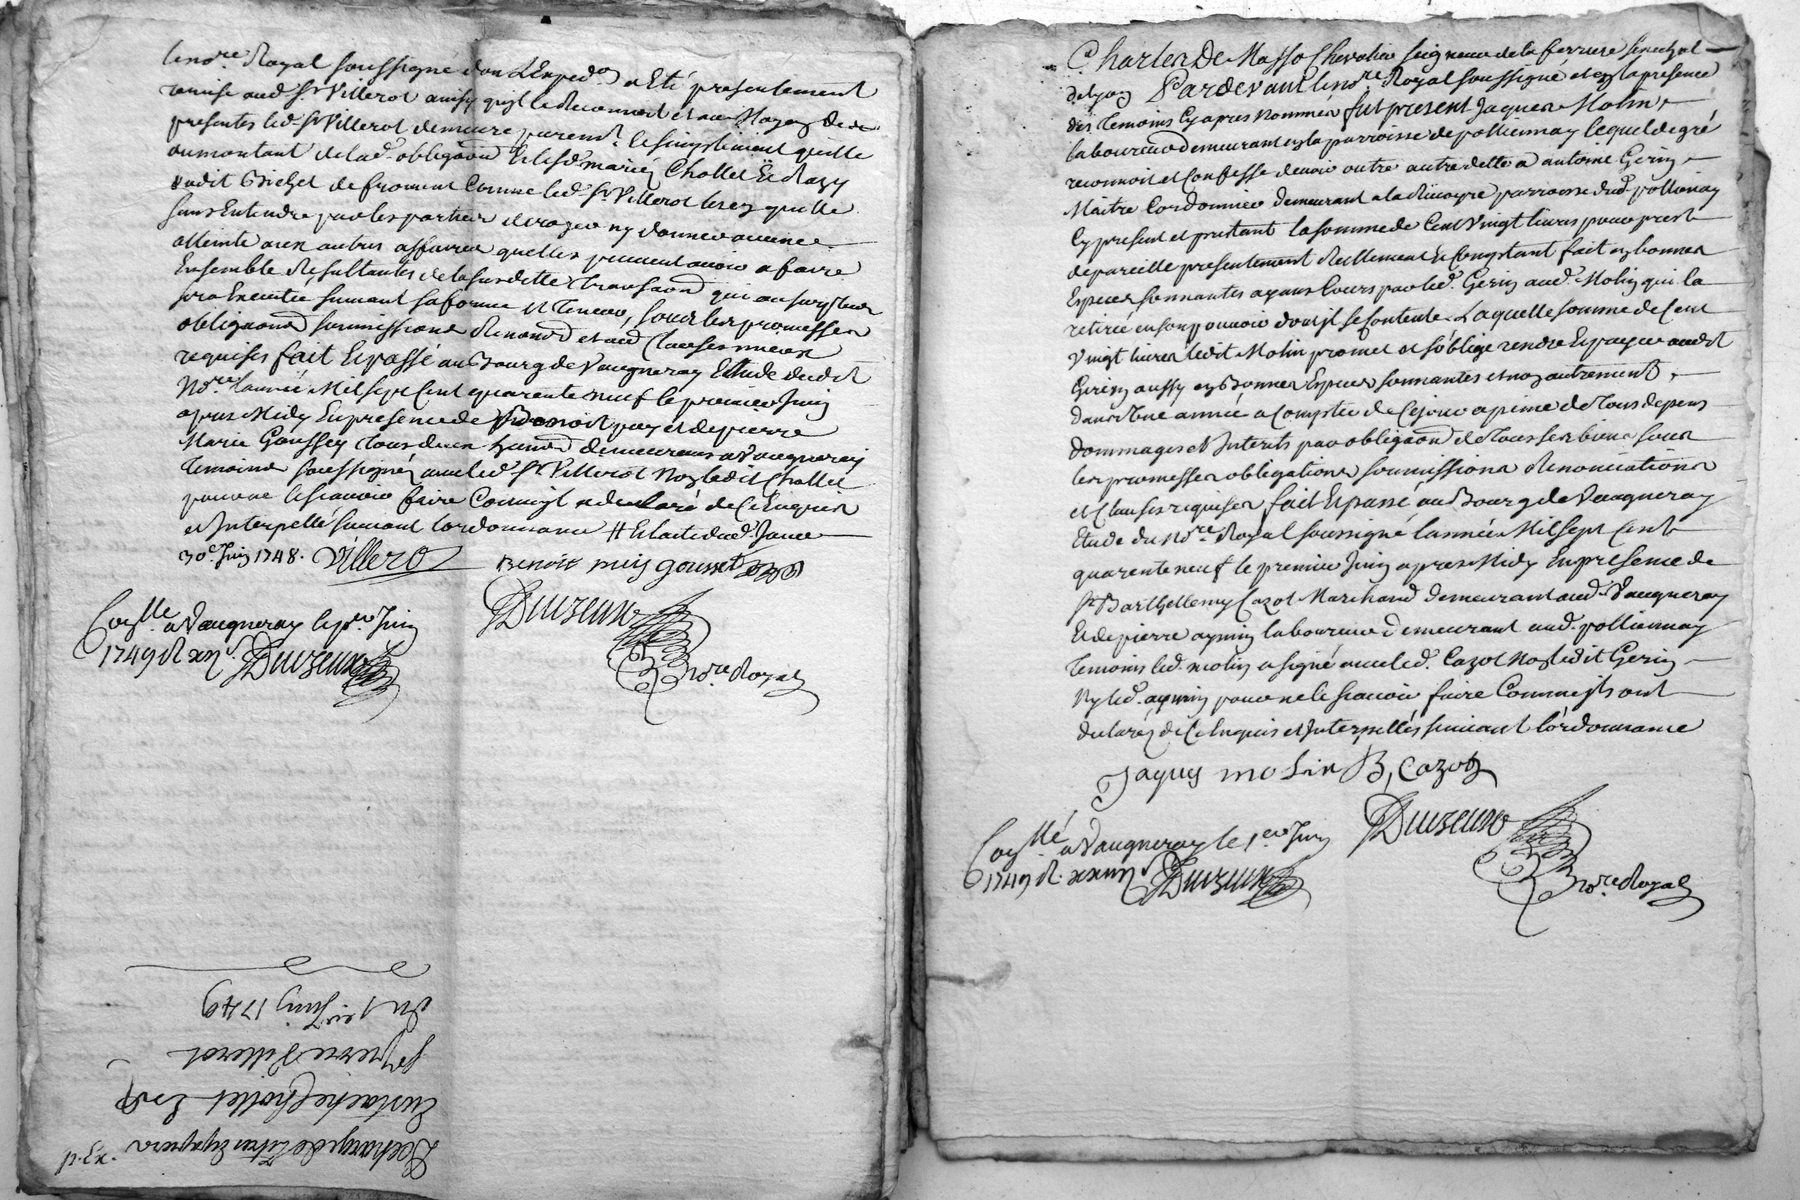 le no.re Royal soussigné dont L'Exped.on a Eté presentement
remise aud. Sr. Villerot ainsy qu'il le Reconnoit et au Moyen des
presentes led. Sr. Villerot demeure purem.t & simplement quitte
du montant de lad. obligaôn & lesd. mariés Chollet &
dudit Bichet de froment Comme led. Sr. Villerot les en quitte
sans Entendre par les parties deroger ny donner aucune
atteinte aux autres affaires quelles peuvent avoir a faire
Ensemble Resultantes de la susditte transaôn qui au surplus
sera Executée suivant sa forme et Teneur, sous les promesses
obligaons soumissions Renonôns et aud. Clauses
requises fait & passé au Bourg de Vaugneray Etude dudit
No.re l'année Mil sept Cent quarente neuf le premier Juin
apres Midy En presence de Benoit puy et de pierre
Marie Goussey tous deux demeurans a Vaugneray
temoins soussignés avec led. Sr. Villerot Non ledit Chollet
pour ne le scavoir faire Comme il a declaré de Ce Enquis
et Interpellé suivant l'ordonnance # & la ditte
30e Juin 1748. Villerot Benoit puy gousset
Duizeuxo
no.re Royal
Con.llé a Vaugneray le p.er Juin
1749 R
Decharge de Titres & papiers
Eustache Chollet
Sr pierre Villerot
Du 1er Juin 1749
p. Ex.
Charles De Masso Chevalier seigneur de la ferriere senechal
de Lyon Pardevant le no.re Royal soussigné et en la presence
des temoins Cy apres Nommés fut present Jaques Molin
laboureur demeurant en la parroisse de pollionnay lequel de gré
reconnoit et Confesse devoir outre autre dette a antoine Gerin
Maitre Cordonnier demeurant a la parroisse dud. pollionay
Cy present et pretant la somme de Cent Vingt livres pour prest
de pareille presentement Reellement & Comptant fait en bonnes
Especes sonnantes ayans Cours par led. Gerin aud. Molin qui la
retirée en son pouvoir dont il se Contente Laquelle somme de Cent
Vingt livres ledit Molin promet et s'oblige rendre & payer audit
Gerin aussy en Bonnes Especes sonnantes et non autrement,
dans Une année a Compter de Ce jour a peine de Tous depens
dommages et Interets par obligaôn de Tous ses biens sous
les promesses obligations soumissions Renonciations
et Clauses requises fait & passé au Bourg de Vaugneray
Etude du No.re Royal soussigné l'année Mil sept Cent
quarente neuf le premier Juin apres Midy En presence de
Sr. Barthellemy Cazot Marchand demeurant aud. Vaugneray
Et de pierre aynin laboureur demeurant aud. pollionnay
temoins led. molin a signé avec led. Cazot Non ledit Gerin
Ny led. aynin pour ne le scavoir faire Comme ils ont
declarés de Ce Enquis et Interpellés suivant l'ordonnance
Jaques molin B, Cazot
Duizeuxo
no.re Royal
Con.llé a Vaugneray le 1.er Juin
1749 R.